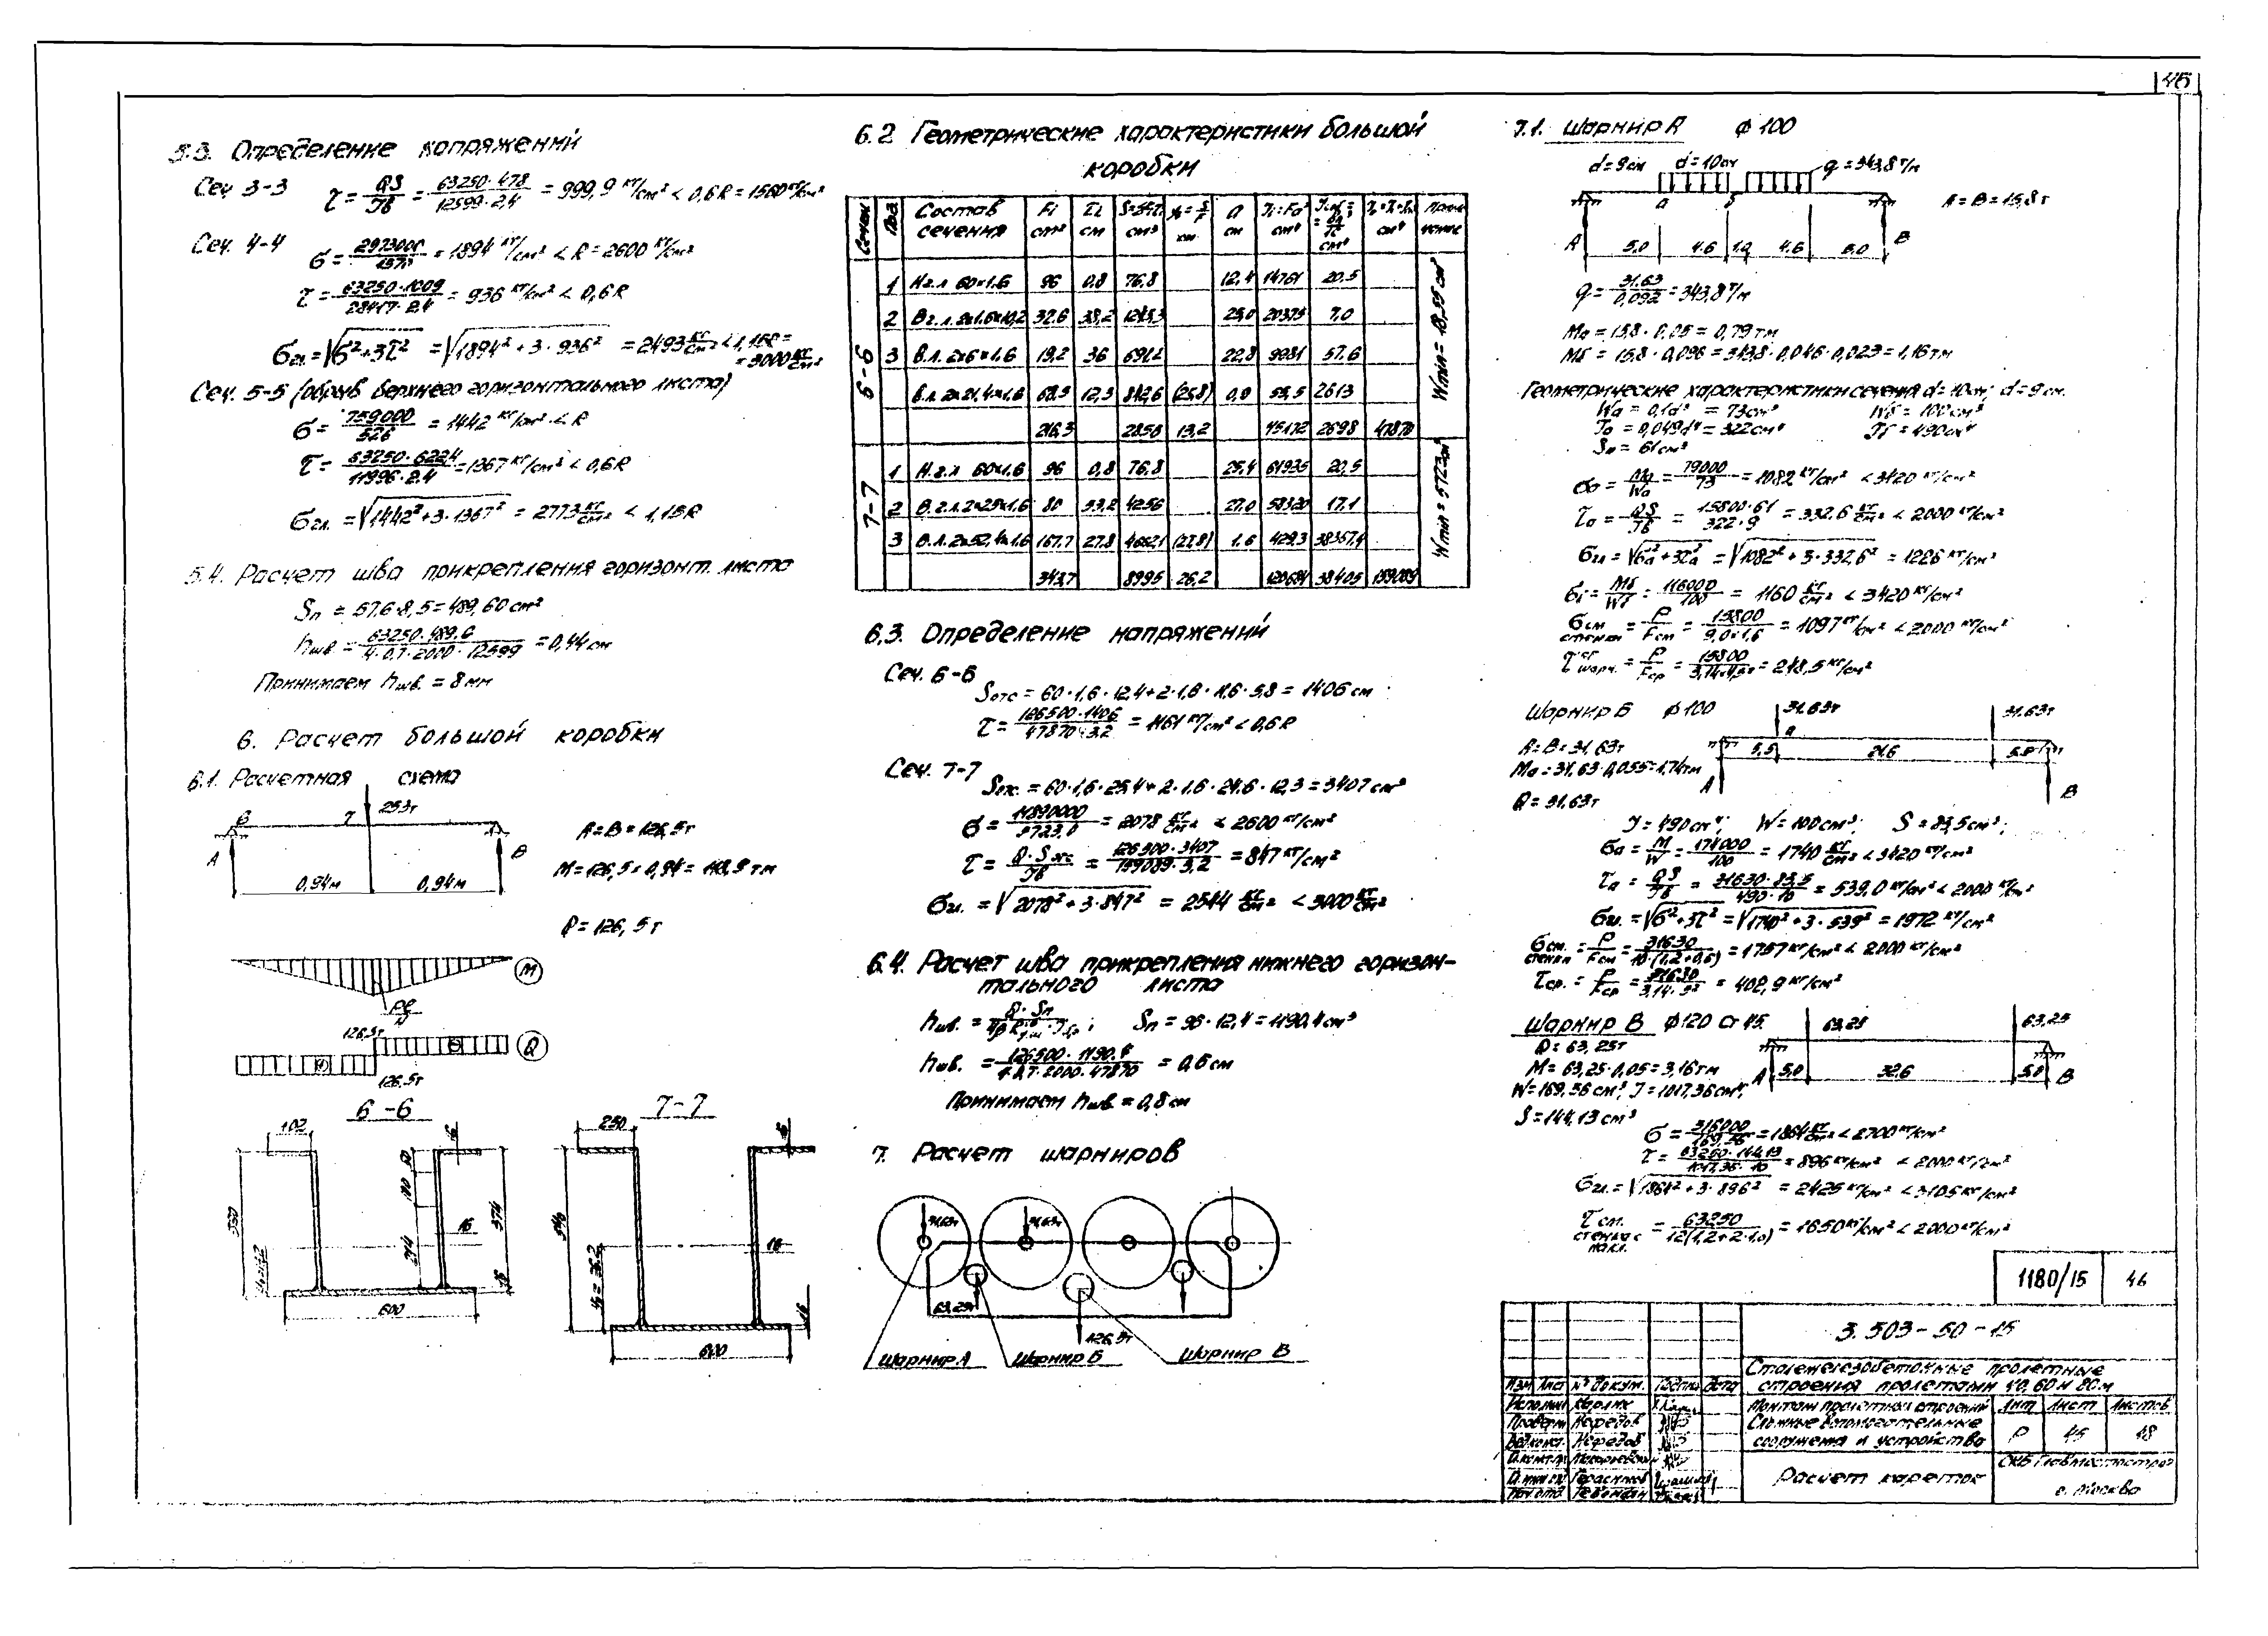 46
5.3. Определение напряжений
Сеч. 3-3 τ = QS/Jδ = 63250·478/12599·2,4 = 999,9 кг/см² < 0,6R = 1560 кг/см²
Сеч. 4-4 σ = 2973000/1570 = 1894 кг/см² < R = 2600 кг/см²
τ = 63250·1009/28417·2,4 = 936 кг/см² < 0,6R
σгл. = √σ²+3τ² = √1894²+3·936² = 2493 кг/см² < 1,15R = 3000 кг/см²
Сеч. 5-5 (обрыв верхнего горизонтального листа)
σ = 759000/526 = 1442 кг/см² < R
τ = 63250·622,4/11996·2,4 = 1367 кг/см² < 0,6R
σгл. = √1442²+3·1367² = 2773 кг/см² < 1,15R
5.4. Расчет шва прикрепления горизонт. листа
Sп = 57,6·8,5 = 489,60 см²
hшв. = 63250·489,6/4·0,7·2000·12599 = 0,44 см
Принимаем hшв. = 8 мм
6. Расчет большой коробки
6.1. Расчетная схема
253т
6 7
А В
0,94м 0,94м
А = В = 126,5т
М = 126,5·0,94 = 118,9 тм
Q = 126,5т
М
126,5т
Q
126,5т
6-6
102
600
374
214
16
7-7
250
16
600
6.2 Геометрические характеристики большой
коробки
Сечен. Поз. Состав сечения Fi см² Zi см см³ a см см⁴ см⁴ см⁴
6-6 Wmin = 18,55 см³
1 Н.г.л. 60×1,6 96 0,8 76,8 12,4 14761 20,5
2 В.г.л. 2×1,6×10,2 32,6 38,2 1245,3 25,0 20375 7,0
3 В.л. 2×6×1,6 19,2 36 691,2 22,8 9981 57,6
В.л. 2×21,4×1,6 68,5 12,3 842,6 (25,8) 0,9 55,5 2613
216,3 2856 13,2 45172 2698 47870
7-7 Wmin = 5723 см³
1 Н.г.л 60×1,6 96 0,8 76,8 25,4 61935 20,5
2 В.г.л. 2×25×1,6 80 53,2 4256 27,0 58320 17,1
3 В.л. 2×52,4×1,6 167,7 27,8 4662,1 (27,8) 1,6 429,3 38367,4
343,7 8995 26,2 120684 38405 159089
6.3. Определение напряжений
Сеч. 6-6
Sотс = 60·1,6·12,4+2·1,6·11,6·5,8 = 1406 см
τ = 126500·1406/47870·3,2 = 1161 кг/см² < 0,6R
Сеч. 7-7
Sотс. = 60·1,6·25,4+2·1,6·24,6·12,3 = 3407 см³
σ = 11890000/5723,0 = 2078 кг/см² < 2600 кг/см²
τ = Q·Sотс/Jδ = 126500·3407/159089·3,2 = 847 кг/см²
σгл. = √2078²+3·847² = 2544 кг/см² < 3000 кг/см²
6.4. Расчет шва прикрепления нижнего горизон-
тального листа
Sп = 96·12,4 = 1190,4 см³
hшв. = 126500·1190,4/4·0,7·2000·47870 = 0,6 см
Принимаем hшв. = 0,8 см
7. Расчет шарниров
31,63т 31,63т
63,25т
126,5т
Шарнир А Шарнир Б Шарнир В
7.1. Шарнир А ф 100
d=9см d=10см q=343,8 т/м
А = В = 15,8т
а б
А В
5,0 4.6 1,0 4.6 5,0
q = 31.63/0,092 = 343,8 т/м
Ма = 15,8·0,05 = 0,79 тм
Мб = 15,8·0,096 = 343,8·0,046·0,023 = 1,16 тм
Геометрические характеристики сечения d=10см; d=9см.
Wа = 0,1d³ = 73см³ Wб = 100см³
Jа = 0,049d⁴ = 322см⁴ Jб = 490см⁴
Sп = 61см³
σа = Ма/Wа = 79000/73 = 1082 кг/см² < 3420 кг/см²
τа = QS/Jδ = 15800·61/322·9 = 332.6 кг/см² < 2000 кг/см²
σгл = √σа²+3τа² = √1082²+3·332,6² = 1226 кг/см²
σб = Мб/Wб = 116000/100 = 1160 кг/см² < 3420 кг/см²
σсм стенки = Р/Fсм = 15800/9,0×1,6 = 1097 кг/см² < 2000 кг/см²
τср шарн. = Р/Fср = 15800/ = 248,5 кг/см²
Шарнир Б ф100 31.63т 31.63т
А = В = 31,63т
Ма = 31,63·0,055 = 1,74тм
Q = 31,63т
а
5,5 21,6 5,0
А В
J = 490см⁴; W = 100см³; S = 83,5см³;
σа = М/W = 174000/100 = 1740 кг/см² < 3420 кг/см²
τа = QS/Jδ = 31630·83,5/490·10 = 539,0 кг/см² < 2000 кг/см²
σгл. = √σ²+3τ² = √1740²+3·539² = 1972 кг/см²
σсм. стенки = Р/Fсм = 31630/10·(1,2+0,6) = 1757 кг/см² < 2000 кг/см²
τср. = Р/Fср = 31630/3,14·5² = 402,9 кг/см²
Шарнир В ф120 Ст 45. 63,25 63,25
Q = 63,25т
М = 63,25·0,05 = 3,16тм
W = 169,56 см³, J = 1017,36 см⁴,
S = 144,13 см³
А 5,0 32,6 5,0 В
σ = 316000/169,56 = 1864 кг/см² < 2700 кг/см²
τ = 63250·144,13/1017,36·10 = 896 кг/см² < 2000 кг/см²
σгл. = √1864²+3·896² = 2425 кг/см² < 3105 кг/см²
τсм. стенки с накл. = 63250/12(1,2+2·1,0) = 1650 кг/см² < 2000 кг/см²
1180/15 46
3.503-50-15
Сталежелезобетонные пролетные
строения пролетами 40, 60 и 80м
Изм Лист № докум. Подпись Дата
Монтаж пролетных строений
Сложные вспомогательные
сооружения и устройства
Лит Лист Листов
Р 45 48
Исполнил Карпих
Проверил Нефедов
Нефедов
Герасимов
Расчет кареток
СКБ Главмостострой
г. Москва